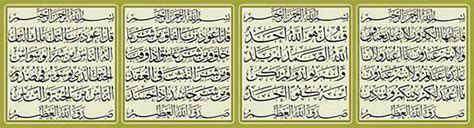 بسم الله الرحمن الرحيم
قل يا أيها الكفرون لا أعبد ما تعبدون
ولا أنتم عبدون ما أعبد ولا
أنا عابد ما عبدتم ولا أنتم عبدون
ما أعبد لكم دينكم ولي دين
صدق الله العظيم
بسم الله الرحمن الرحيم
قل هو الله أحد
الله الصمد لم يلد
ولم يولد ولم يكن
له كفوا أحد
صدق الله العظيم
بسم الله الرحمن الرحيم
قل أعوذ برب الفلق من شر ما
خلق ومن شر غاسق إذا وقب
ومن شر النفثت في العقد
ومن شر حاسد إذا حسد
صدق الله العظيم
بسم الله الرحمن الرحيم
قل أعوذ برب الناس ملك الناس
إله الناس من شر الوسواس
الخناس الذي يوسوس في صدور
الناس من الجنة والناس
صدق الله العظيم